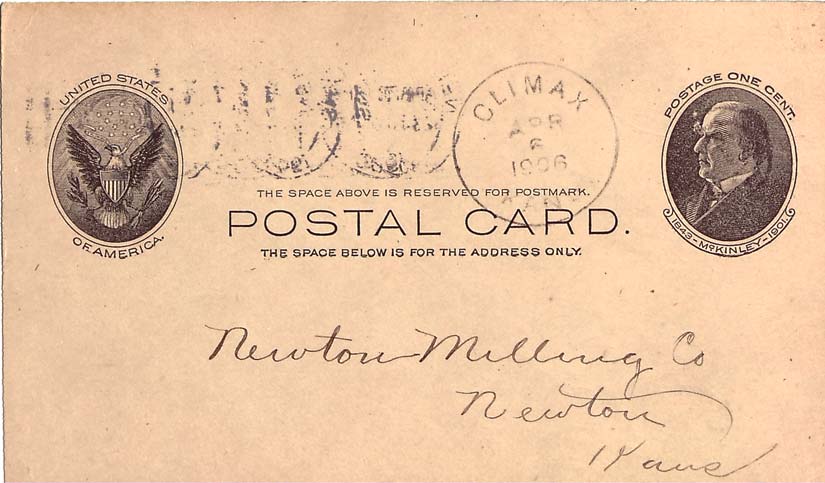 UNITED STATES
OF AMERICA.
CLIMAX
APR
6
1906
KAN
POSTAGE ONE CENT.
1843-McKINLEY-1901
THE SPACE ABOVE IS RESERVED FOR POSTMARK.
POSTAL CARD.
THE SPACE BELOW IS FOR THE ADDRESS ONLY.
Newton Milling Co
Newton
Kans